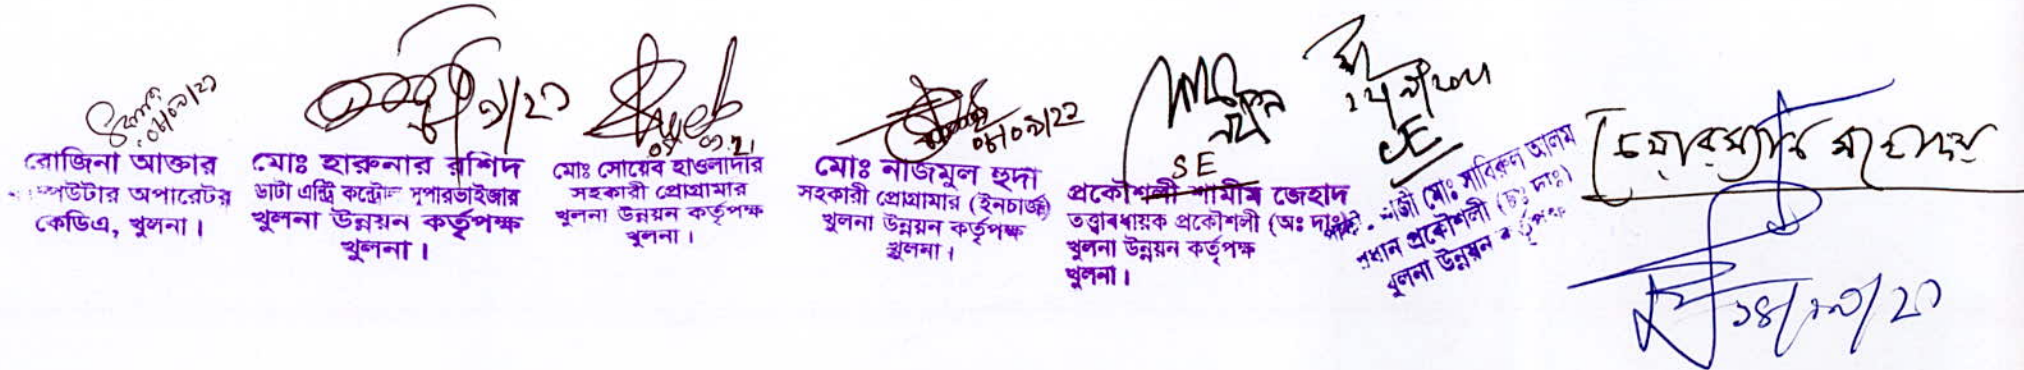 রোজিনা আক্তার
অপারেটর
কেডিএ, খুলনা।
মোঃ হারুনার রশিদ
ডাটা এন্ট্রি কন্ট্রোল সুপারভাইজার
খুলনা উন্নয়ন কর্তৃপক্ষ
খুলনা।
মোঃ সোয়েব হাওলাদার
সহকারী প্রোগ্রামার
খুলনা উন্নয়ন কর্তৃপক্ষ
খুলনা।
মোঃ নাজমুল হুদা
সহকারী প্রোগ্রামার (ইনচার্জ)
খুলনা উন্নয়ন কর্তৃপক্ষ
খুলনা।
SE
প্রকৌশলী শামীম জেহাদ
তত্ত্বাবধায়ক প্রকৌশলী (অঃ দাঃ)
খুলনা উন্নয়ন কর্তৃপক্ষ
খুলনা।
CE
মোঃ সাবিরুল আলম
প্রধান প্রকৌশলী (চঃ দাঃ)
খুলনা উন্নয়ন কর্তৃপক্ষ
চেয়ারম্যান মহোদয়